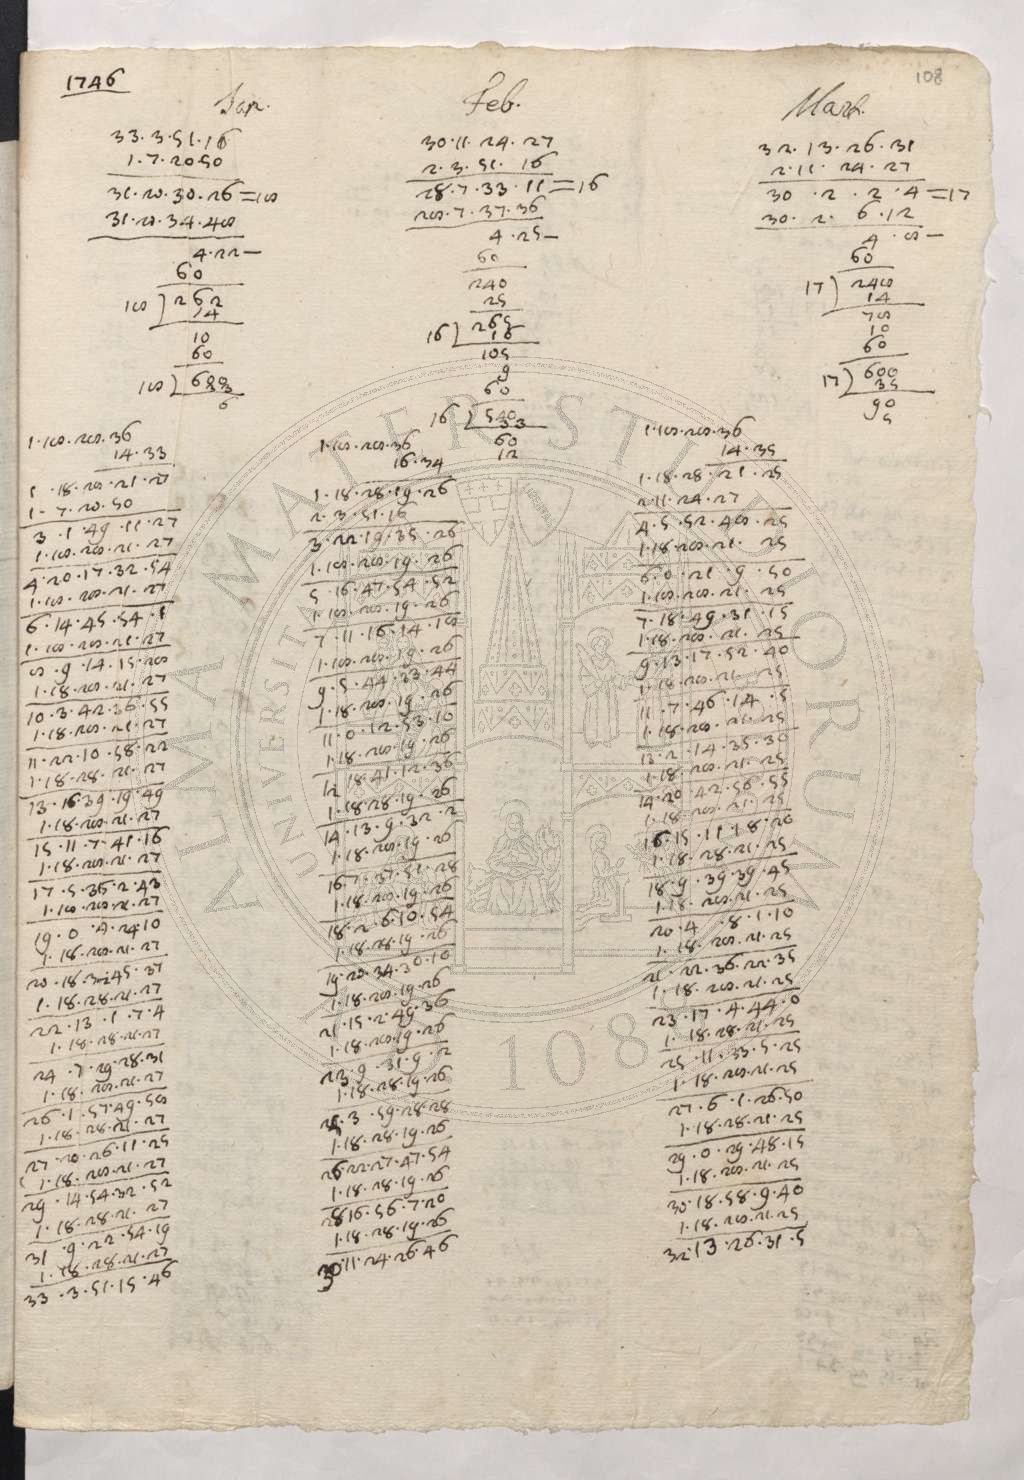 1746
108
Jan.
33.3.51.16
1.7.20.50
31.20.30.26=18
31.20.34.48
4.22—
60
18) 262
14
10
60
18) 6
33
6
1.18.28.36
14.33
1.18.28.21.27
1.7.20.50
3.1.49.11.27
1.18.28.21.27
4.20.17.32.54
1.18.28.21.27
6.14.45.54.1
1.18.28.21.27
8.9.14.15.28
1.18.28.21.27
10.3.42.36.55
1.18.28.21.27
11.22.10.58.22
1.18.28.21.27
13.16.39.19.49
1.18.28.21.27
15.11.7.41.16
1.18.28.21.27
17.5.36.2.43
1.18.28.21.27
19.0.4.24.10
1.18.28.21.27
20.18.32.45.37
1.18.28.21.27
22.13.1.7.4
1.18.28.21.27
24.7.29.28.31
1.18.28.21.27
26.1.57.49.58
1.18.28.21.27
27.20.26.11.25
1.18.28.21.27
29.14.54.32.52
1.18.28.21.27
31.9.22.54.19
1.18.28.21.27
33.3.51.15.46
Feb.
30.11.24.27
2.3.51.16
28.7.33.11=16
28.7.37.36
4.25—
60
240
25
16) 265
16
105
9
60
16) 540
33
60
12
1.18.28.36
16.34
1.18.28.19.26
2.3.51.16
3.22.19.35.26
1.18.28.19.26
5.16.47.54.52
1.18.28.19.26
7.11.16.14.18
1.18.28.19.26
9.5.44.33.44
1.18.28.19.26
11.0.12.53.10
1.18.28.19.26
12.18.41.12.36
1.18.28.19.26
14.13.9.32.2
1.18.28.19.26
16.7.37.51.28
1.18.28.19.26
18.2.6.10.54
1.18.28.19.26
19.20.34.30.10
1.18.28.19.26
21.15.2.49.36
1.18.28.19.26
23.9.31.9.2
1.18.28.19.26
25.3.59.28.28
1.18.28.19.26
26.22.27.47.54
1.18.28.19.26
28.16.56.7.20
1.18.28.19.26
30.11.24.26.46
Mart.
32.13.26.31
2.11.24.27
30.2.2.4=17
30.2.6.12
4.8—
60
17) 248
14
78
10
60
17) 600
35
90
5
1.18.28.36
14.35
1.18.28.21.25
2.11.24.27
4.5.52.48.25
1.18.28.21.25
6.0.21.9.50
1.18.28.21.25
7.18.49.31.15
1.18.28.21.25
9.13.17.52.40
1.18.28.21.25
11.7.46.14.5
1.18.28.21.25
13.2.14.35.30
1.18.28.21.25
14.20.42.56.55
1.18.28.21.25
16.15.11.18.20
1.18.28.21.25
18.9.39.39.45
1.18.28.21.25
20.4.8.1.10
1.18.28.21.25
21.22.36.22.35
1.18.28.21.25
23.17.4.44.0
1.18.28.21.25
25.11.33.5.25
1.18.28.21.25
27.6.1.26.50
1.18.28.21.25
29.0.29.48.15
1.18.28.21.25
30.18.58.9.40
1.18.28.21.25
32.13.26.31.5
ALMA MATER STUDIORUM
UNIVERSITÀ
1088